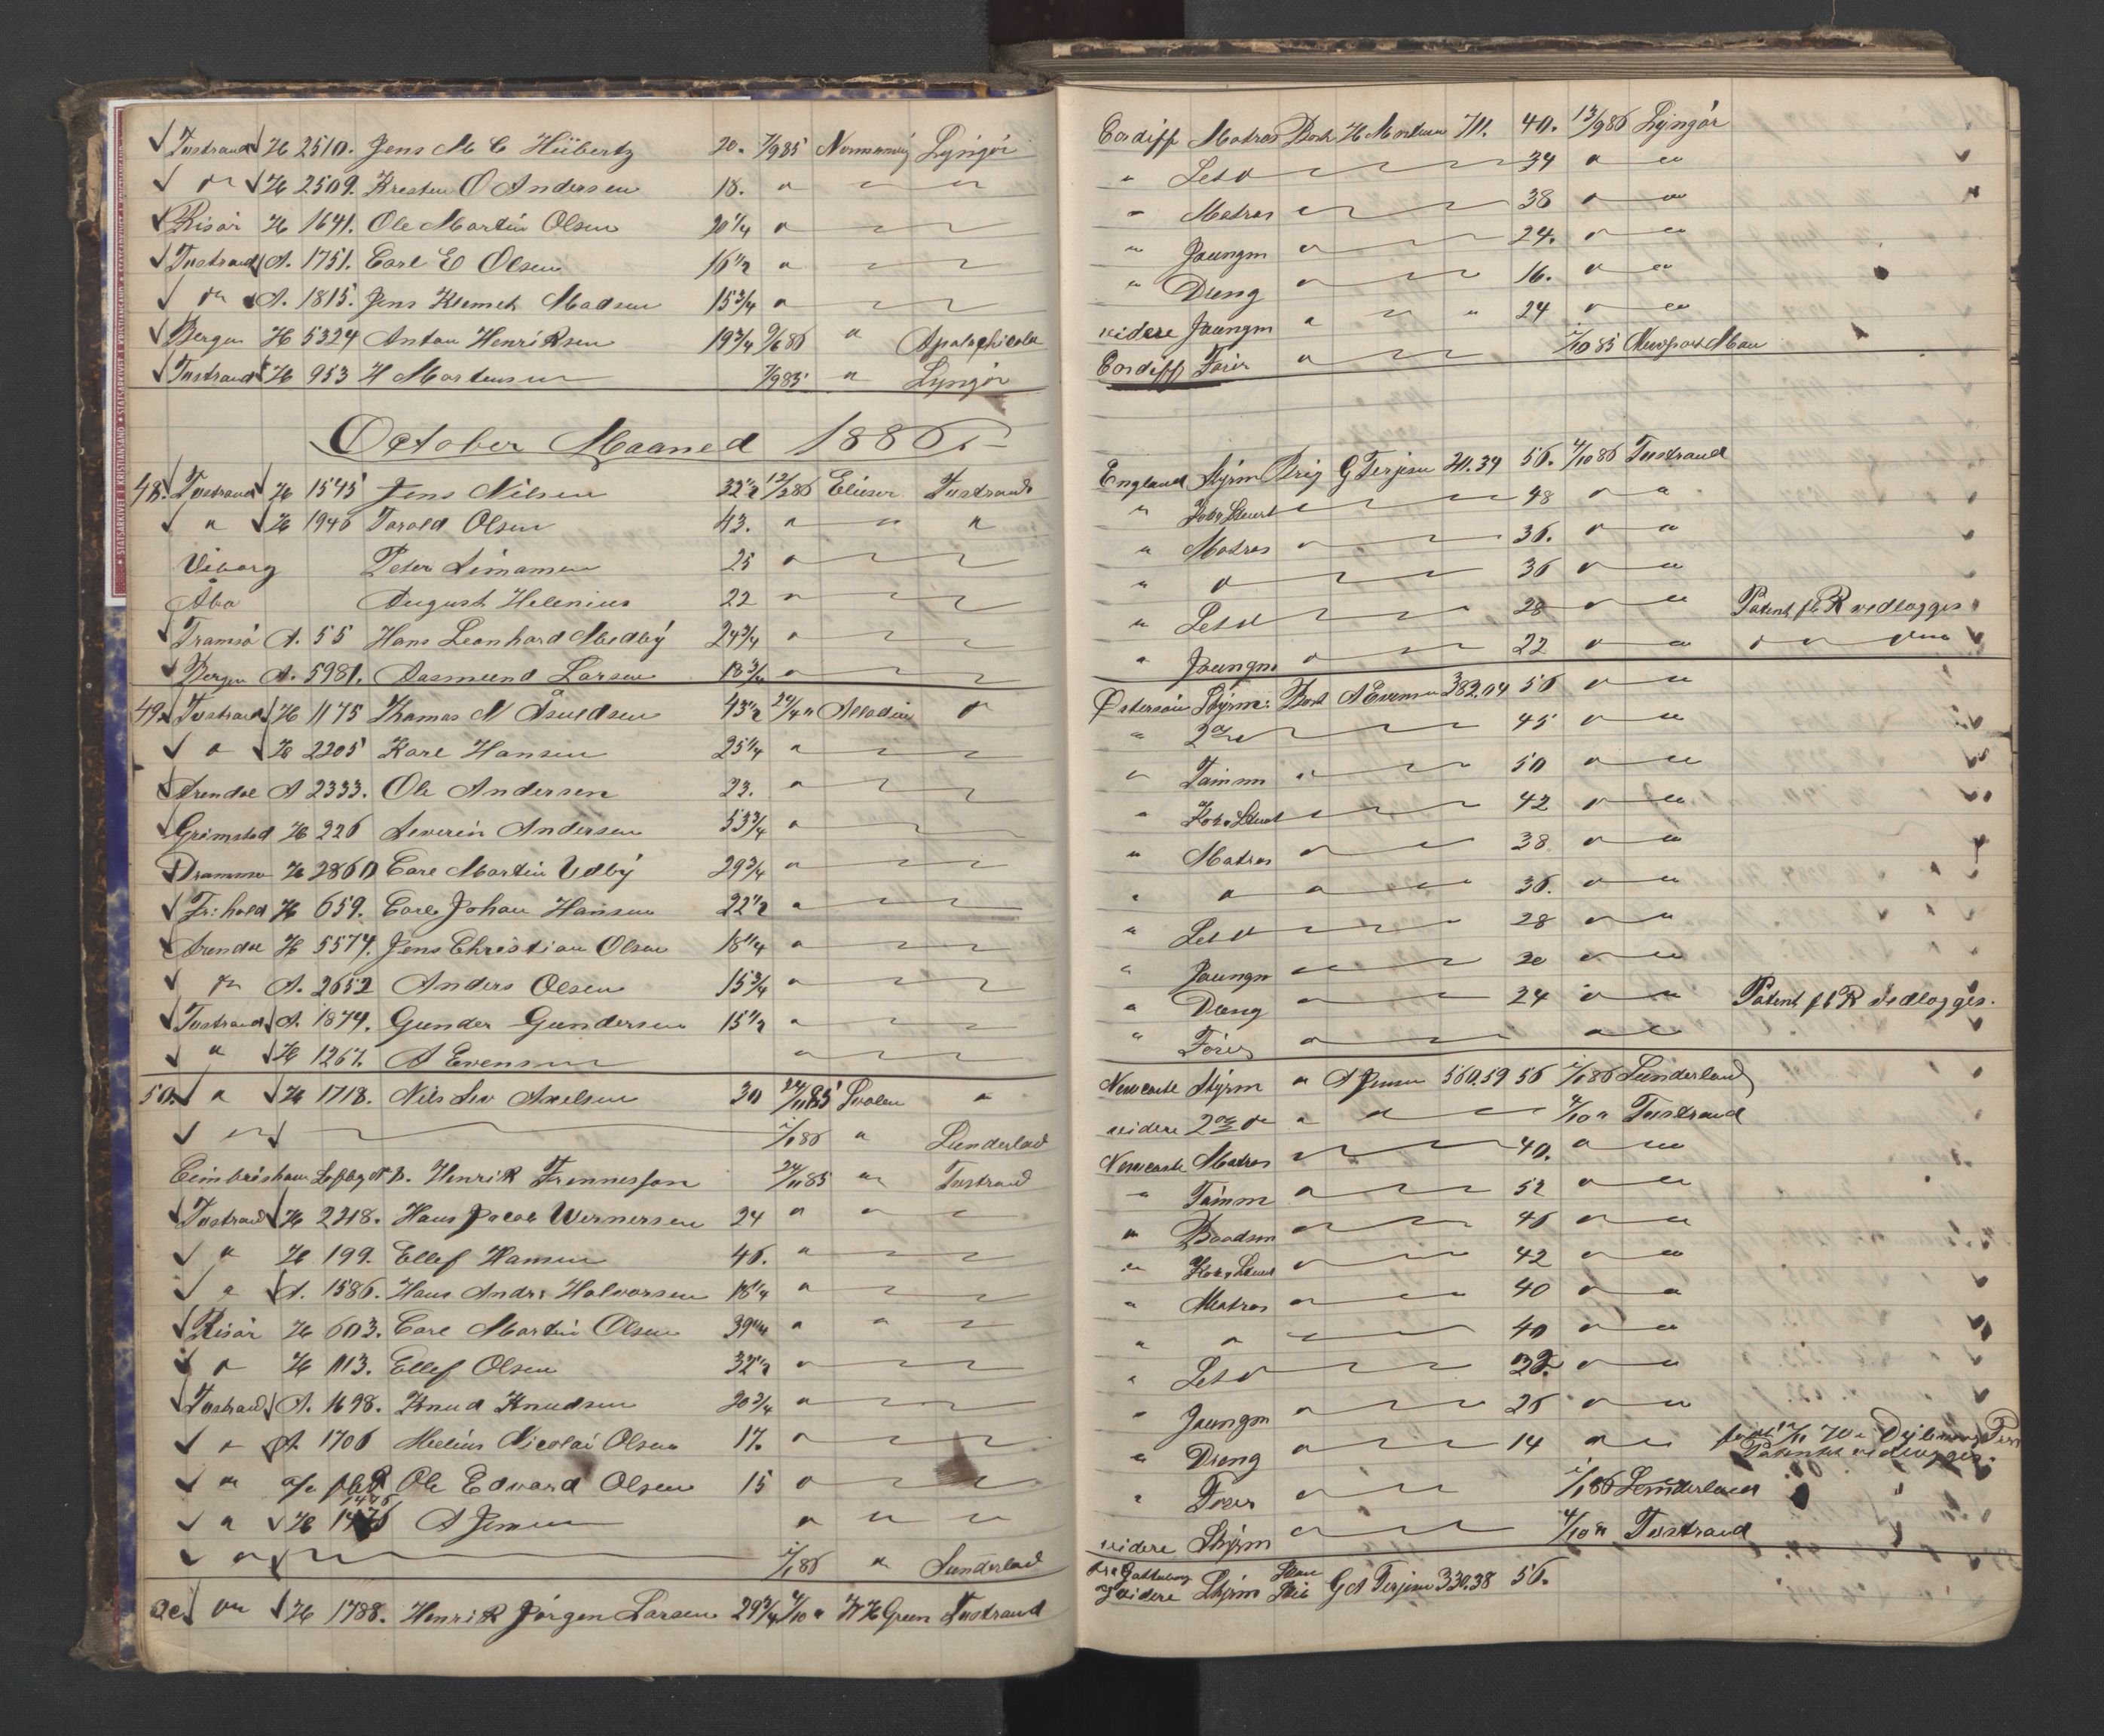 Tvstrand H 2510. Jens M C Hübertz 20. 7/9 85 Normanvig Lyngör
" H 2509. Kresten O Andersen 18. " " "
Risör H 1641. Ole Martin Olsen 20 1/4 "
Tvstrand A. 1751. Carl E Olsen 16 1/2 "
" A. 1815. Jens Klemet Madsen 15 3/4 "
Bergen H 5324 Anton Henriksen 19 3/4 9/6 86 " Apalachicola
Tvstrand H 953 H Mortensen 7/9 85 " Lyngör
October Maaned 1886
48. Tvstrand H 1545 Jens Nilsen 32 1/2 12/3 86 Elieser Tvstrand
" H 1946 Tarald Olsen 43. " " "
Viborg Peter Simamen 25 "
Åbo August Helenius 22 "
Tromsö A. 55 Hans Leonhard Medbÿ 24 3/4 "
Bergen A. 5981. Aasmund Larsen 18 3/4 "
49. Tvstrand H 1175 Thomas N Åsuldsen 43 1/2 24/4 " Alladin "
" H 2205 Karl Hansen 25 1/4 "
Arendal A 2333. Ole Andersen 23. "
Grimstad H 226 Severin Andersen 53 3/4 "
Drammen H 2860 Carl Martin Udbÿ 29 3/4 "
Fr:hald H 659. Carl Johan Hansen 22 1/2 "
Arendal H 5574. Jens Christian Olsen 18 1/4 "
" A. 2652 Anders Olsen 15 3/4 "
Tvstrand A. 1874. Gunder Gundersen 15 1/2 "
" H 1267. A Evensen "
50. " H 1718. Nils Liv Axelsen 30 24/11 85 Svalen "
" 2/1 86 " Sunderland
Cimbrishavn Henrik Frennesson 24/11 85 " Tvstrand
Tvstrand H 2218. Hans Jacob Wernersen 24 " " "
" H 199. Ellef Hansen 46. "
" A. 1586. Hans Andr. Halvorsen 18 1/4 "
Risör H 603. Carl Martin Olsen 39 1/4 "
" H 1113. Ellef Olsen 32 1/2 "
Tvstrand A. 1698. Knud Knudsen 20 3/4 "
" A 1706 Melius Nicolai Olsen 17. "
" Ole Edvard Olsen 15 "
" H 1476 A Jensen " " "
" 2/1 86 " Sunderland
" H 1788. Henrik Jörgen Larsen 29 3/4 4/10 " W H Green Tvstrand
Cardiff Matros Bark H Mortensen 711. 40. 13/9 86 Lyngör
" Letm 34 " "
" Matros 38 " "
" Jaungm 24. " "
" Dreng 16. " "
videre Jaungm " " " 24 " "
Cardiff Förer " 2/10 85 Newport Mon
England Stÿrm Brig G Terjesen 211.34 56. 4/10 86 Tvstrand
" Kok & Stuert 48 " "
" Matros 36. " "
" " 36 " "
" Letm 28 " " Patent fl R vedlægges
" Jaungm 22 " " " " "
Östersöen Stÿrm: Bark A Evensen 382.04 56 " "
" 2den 45 " "
" Tømm 50 " "
" Kok & Stuert 42 " "
" Matros 38 " "
" " 36. " "
" Letm 28 " "
" Jaungm 20 " "
" Dreng 24 " " Patent fl R vedlægges.
" Förer " "
Newcastle Stÿrm " A Jensen 560.59 56 2/1 86 Sunderland
videre 2den " " " 4/10 " Tvstrand
Newcastle Matros 40. " "
" Tømm 52 " "
" Baadsm 46 " "
" Kok & Stuert 42 " "
" Matros 40 " "
" " 40 " "
" Letm 32. " "
" Jaungm 26 " "
" Dreng 14 " " Patentet vedlægges.
" Förer " 2/1 86 Sunderland
videre Stÿrm " 4/10 " Tvstrand
fra Gottenborg
& videre Stÿrm Skon Skib G A Terjesen 330.38 56.
STATSARKIVET I KRISTIANSAND